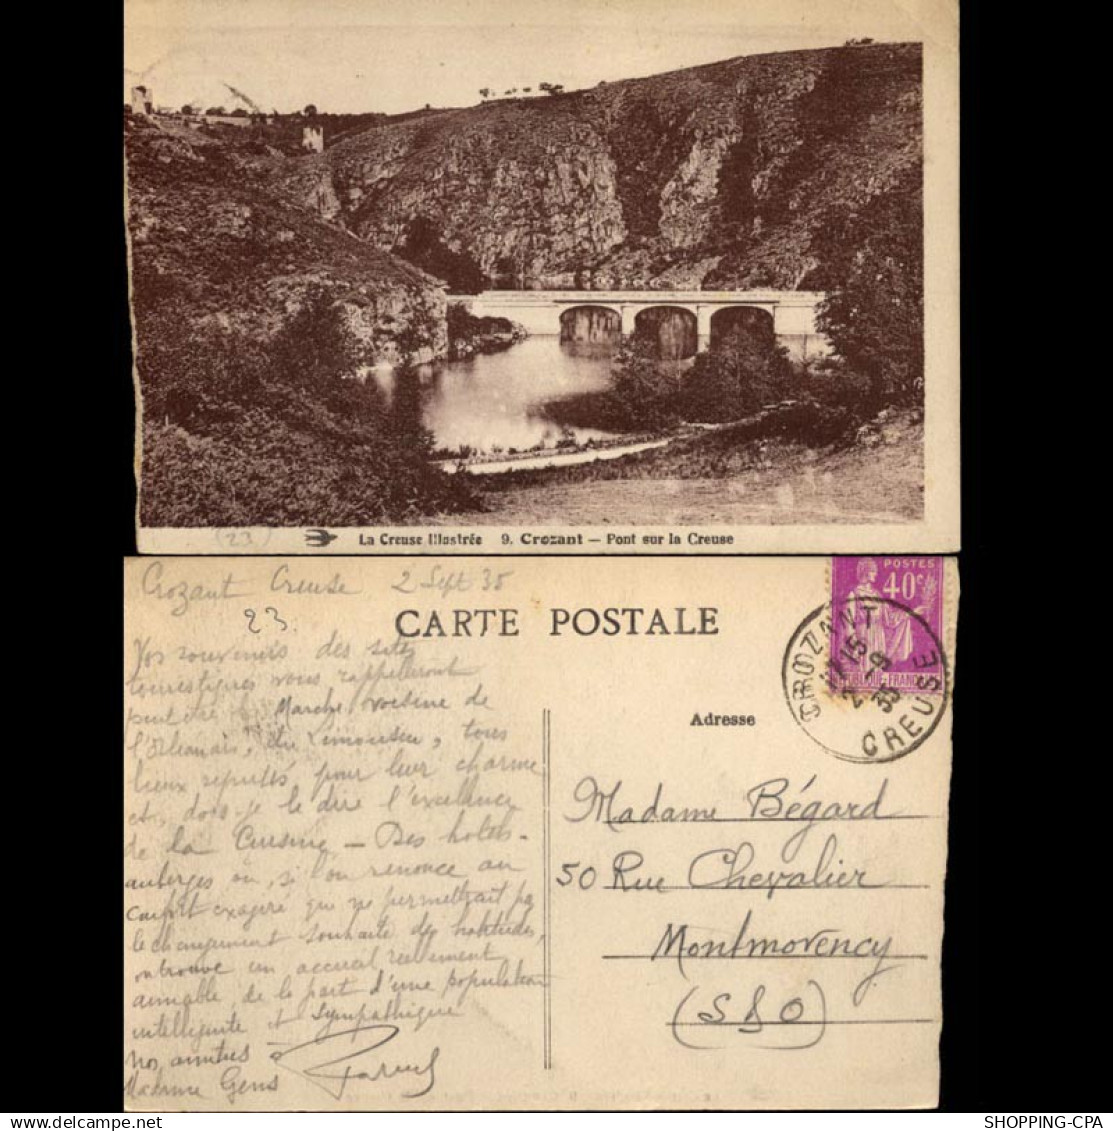 (23)
La Creuse Illustrée 9. Crozant — Pont sur la Creuse
Crozant Creuse 2 Sept 35
23.
CARTE POSTALE
POSTES
40c
REPUBLIQUE FRANÇAISE
CROZANT
17 15
2 -9
35
CREUSE
Vos souvenirs des sites
touristiques vous rappelleront
peut être Marche, voisine de
l'Orléanais, du Limousin, tous
lieux réputés, pour leur charme
et, dois-je le dire l'excellence
de la Cuisine — Des hotels-
auberges où, si l'on renonce au
confort exagéré qui ne permettrait pas
le changement souhaité des habitudes,
on trouve un accueil réellement
aimable, de la part d'une population
intelligente et sympathique
Nos amitiés à
Madame Gens
Adresse
Madame Bégard
50 Rue Chevalier
Montmorency
(S & O)
SHOPPING-CPA